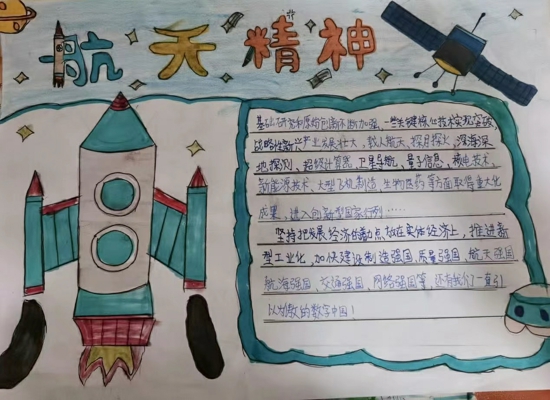 航天精神
基础研究和原始创新不断加强，一些关键核心技术实现突破，
战略性新兴产业发展壮大，载人航天、探月探火、深海深
地探测、超级计算机、卫星导航、量子信息、核电技术、
新能源技术、大型飞机制造、生物医药等方面取得重大化
成果，进入创新型国家行列……
坚持把发展经济的着力点放在实体经济上，推进新
型工业化，加快建设制造强国、质量强国、航天强国
航海强国、交通强国、网络强国等，还有我们一直引
以为傲的数字中国！